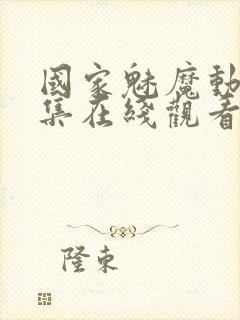 國家魅魔動
集在綫觀看
隆束